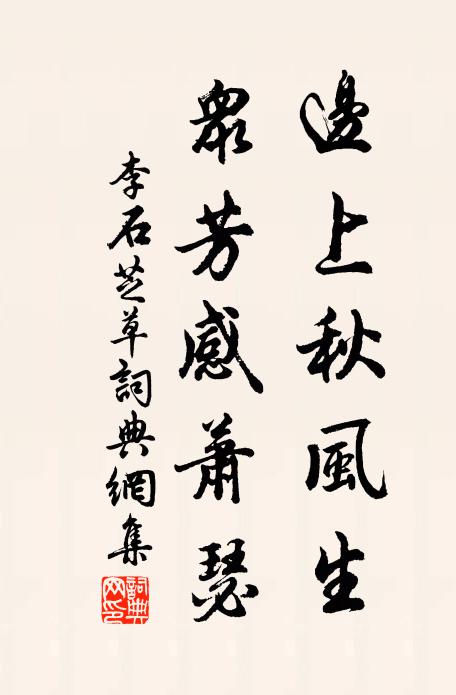 邊上秋風生
衆芳感蕭瑟
李石芝草詞典網集
詞典
网印